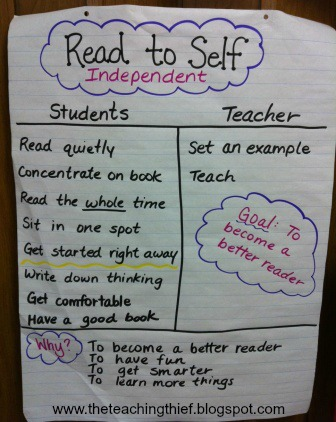 Read to Self
Independent
Students
Read quietly
Concentrate on book
Read the whole time
Sit in one spot
Get started right away
Write down thinking
Get comfortable
Have a good book
Teacher
Set an example
Teach
Goal: To
become a
better reader
Why?
To become a better reader
To have fun
To get smarter
To learn more things
www.theteachingthief.blogspot.com